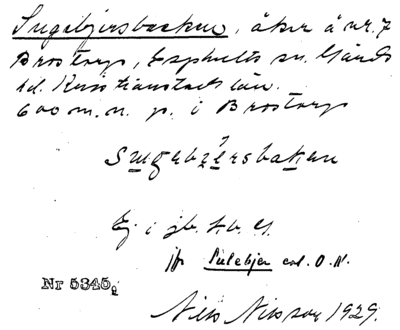 Sugebjersbacken, åker å nr. 7
Brostorp, Esphults sn. Gärds
hd. Kristianstads län.
600 m. n. p. i Brostorp
Sugabzersbakan
Ej i jb. kb. G.
jfr Sulebjer enl. O. N.
Nr 5345
Nils Nilsson 1929.